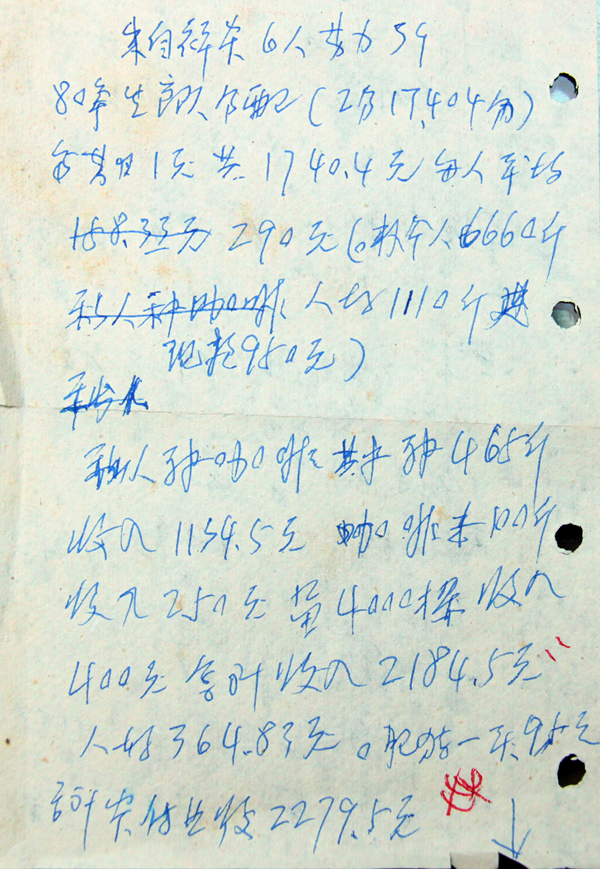 朱自祥家6人劳力5个
80年生产队分配(工分17,404分)
每其日1元 共1740.4元 每人平均
290元(口粮全人6660斤
人均1110斤
现款950元)
私人种咖啡共种465斤
收入1134.5元 咖啡米100斤
收入250元 苗4000棵收入
400元合计收入2184.5元
人均364.83元。肥猪一头95元
计家付业收2279.5元